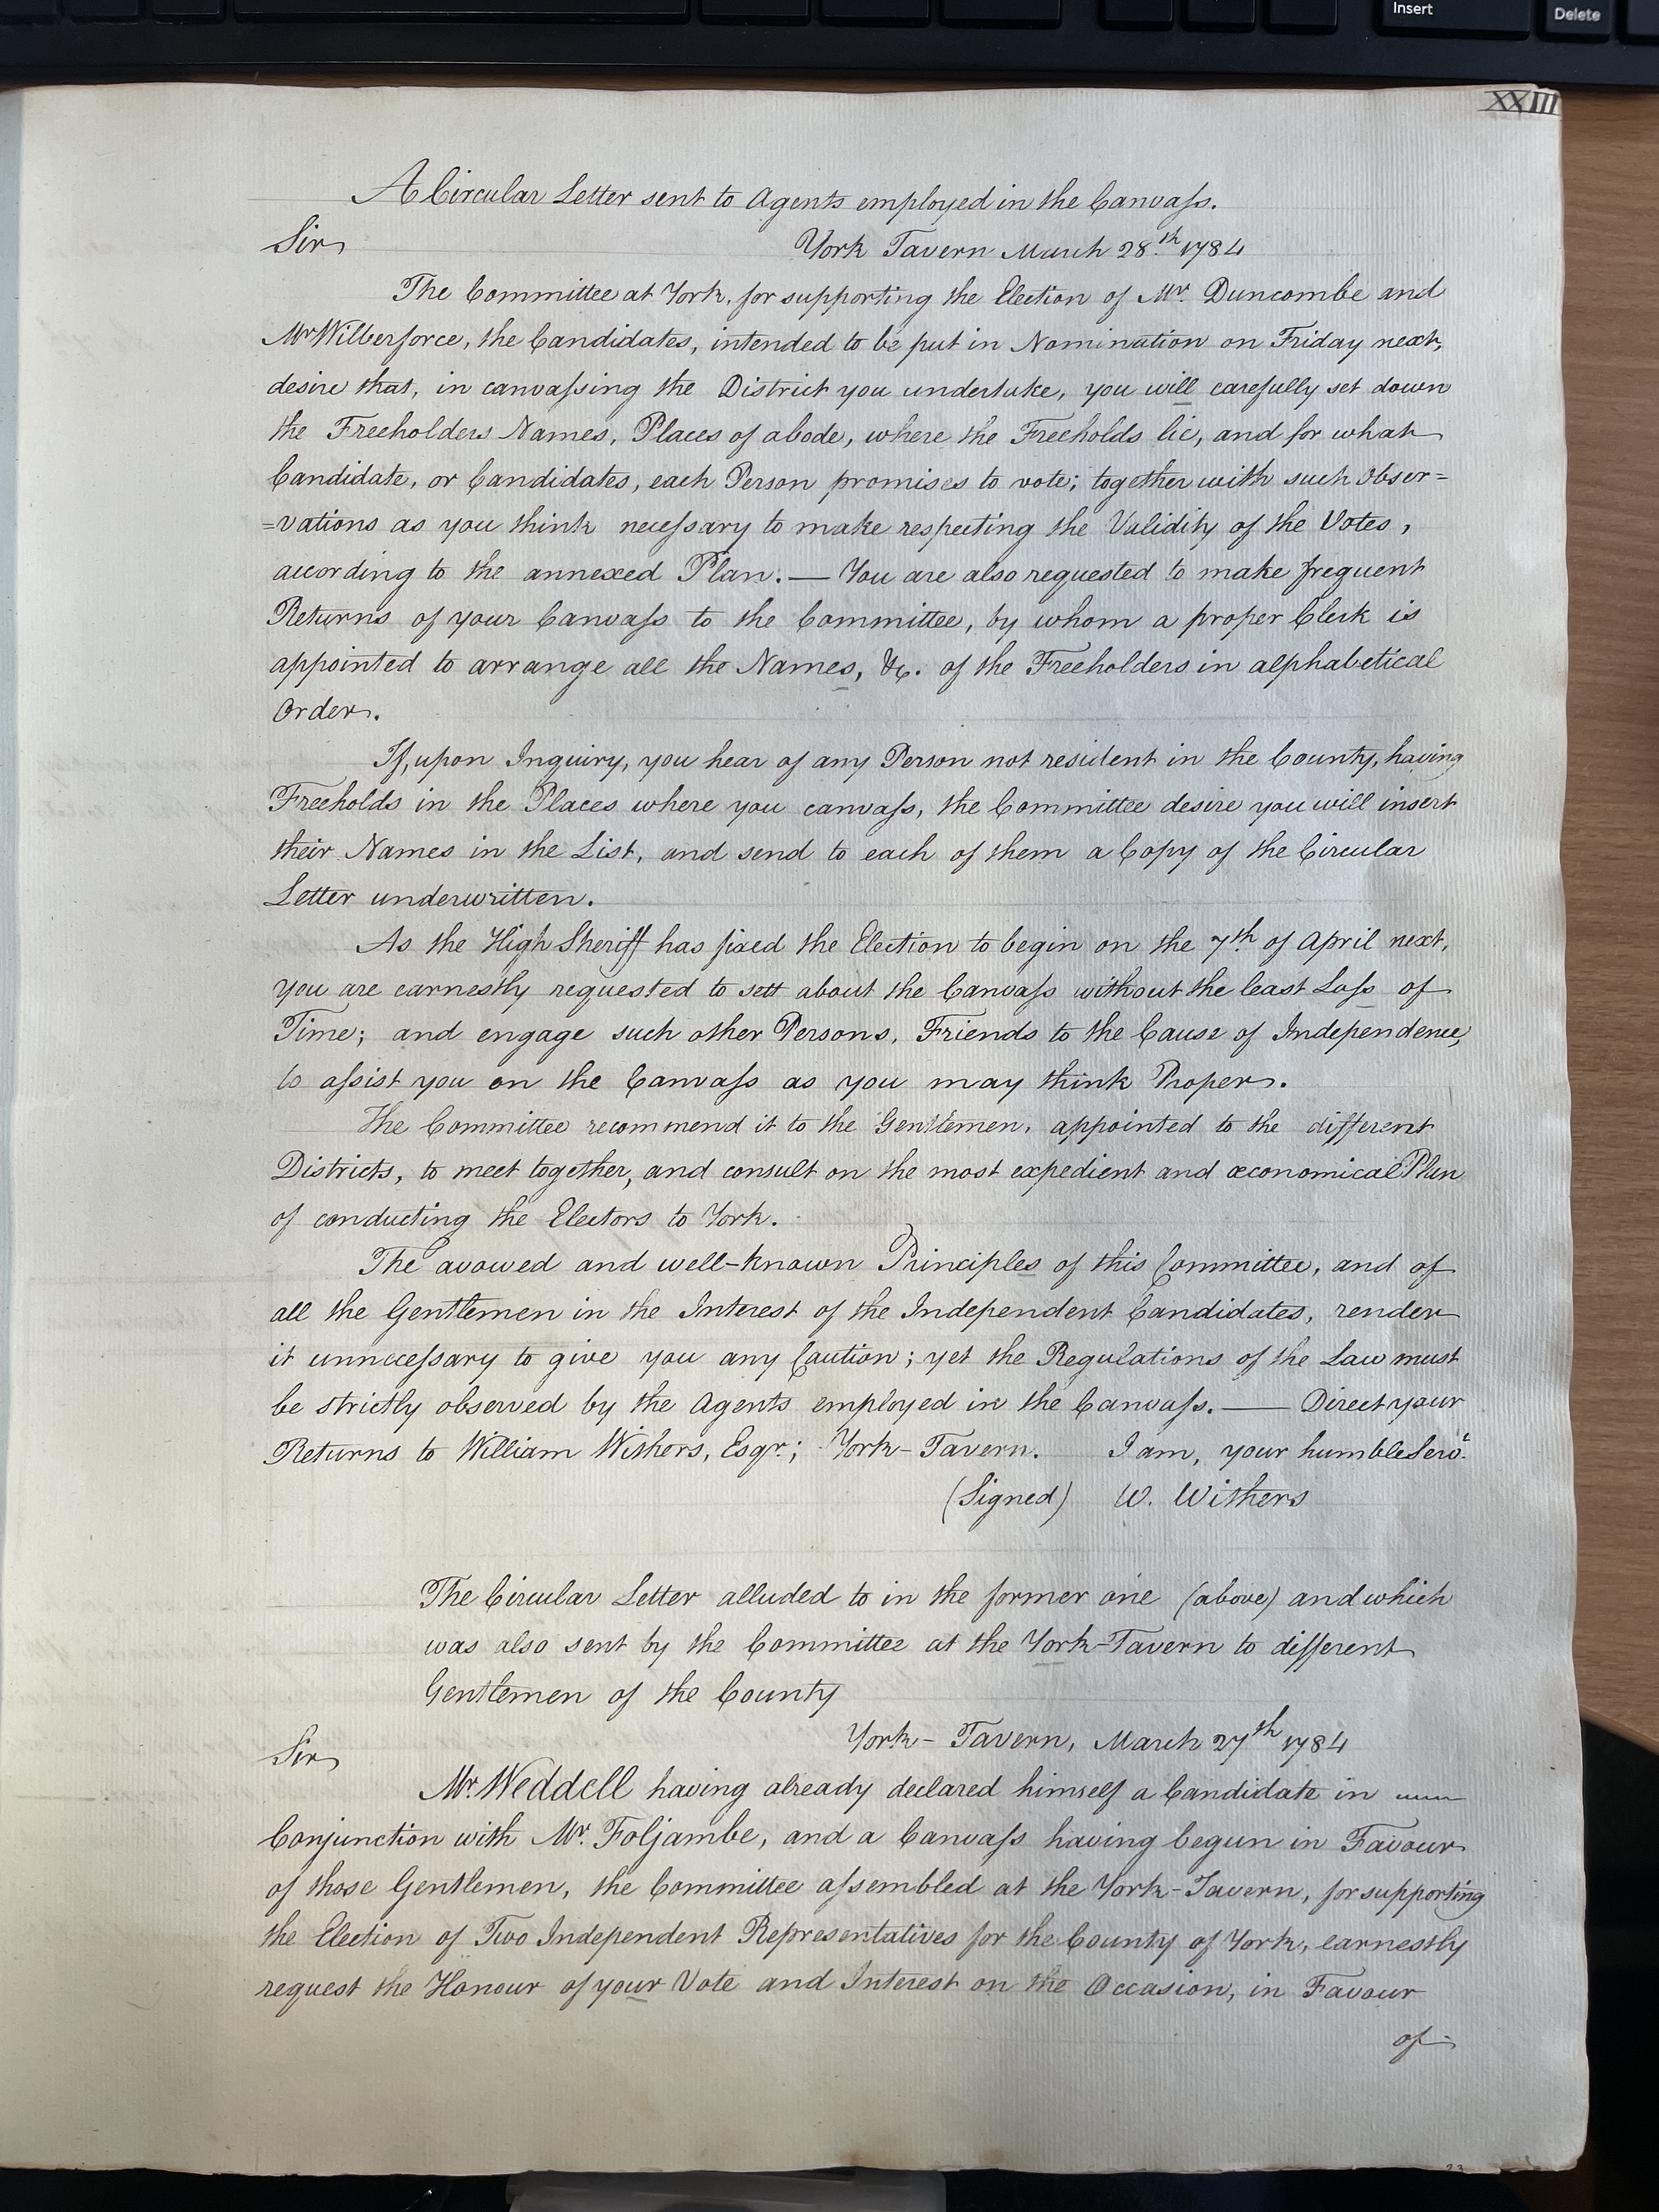 Insert
Delete
XXIII
A Circular Letter sent to Agents employed in the Canvaſs.
Sir
York Tavern March 28.th 1784
The Committee at York, for supporting the Election of Mr. Duncombe and
Mr Wilberforce, the Candidates, intended to be put in Nomination on Friday next,
desire that, in canvaſsing the District you undertake, you will carefully set down
the Freeholders Names, Places of abode, where the Freeholds lie, and for what
Candidate, or Candidates, each Person promises to vote; together with such Obser=
=vations as you think neceſsary to make respecting the Validity of the Votes,
according to the annexed Plan. — You are also requested to make frequent
Returns of your Canvaſs to the Committee, by whom a proper Clerk is
appointed to arrange all the Names, &c. of the Freeholders in alphabetical
Order.
If, upon Inquiry, you hear of any Person not resident in the County, having
Freeholds in the Places where you canvaſs, the Committee desire you will insert
their Names in the List, and send to each of them a Copy of the Circular
Letter underwritten.
As the High Sheriff has fixed the Election to begin on the 7th of April next,
you are earnestly requested to sett about the Canvaſs without the least Loſs of
Time; and engage such other Persons, Friends to the Cause of Independence,
to aſsist you on the Canvaſs as you may think Proper.
The Committee recommend it to the Gentlemen, appointed to the different
Districts, to meet together, and consult on the most expedient and œconomical Plan
of conducting the Electors to York.
The avowed and well-known Principles of this Committee, and of
all the Gentlemen in the Interest of the Independent Candidates, render
it unneceſsary to give you any Caution; yet the Regulations of the Law must
be strictly observed by the Agents employed in the Canvaſs. — Direct your
Returns to William Withers, Esqr.; York-Tavern. I am, your humble Servt.
(Signed) W. Withers
The Circular Letter alluded to in the former one (above) and which
was also sent by the Committee at the York-Tavern to different
Gentlemen of the County
York-Tavern, March 27th 1784
Sir
Mr. Weddell having already declared himself a Candidate in
Conjunction with Mr. Foljambe, and a Canvaſs having begun in Favour
of those Gentlemen, the Committee aſsembled at the York-Tavern, for supporting
the Election of Two Independent Representatives for the County of York, earnestly
request the Honour of your Vote and Interest on the Occasion, in Favour
of
23